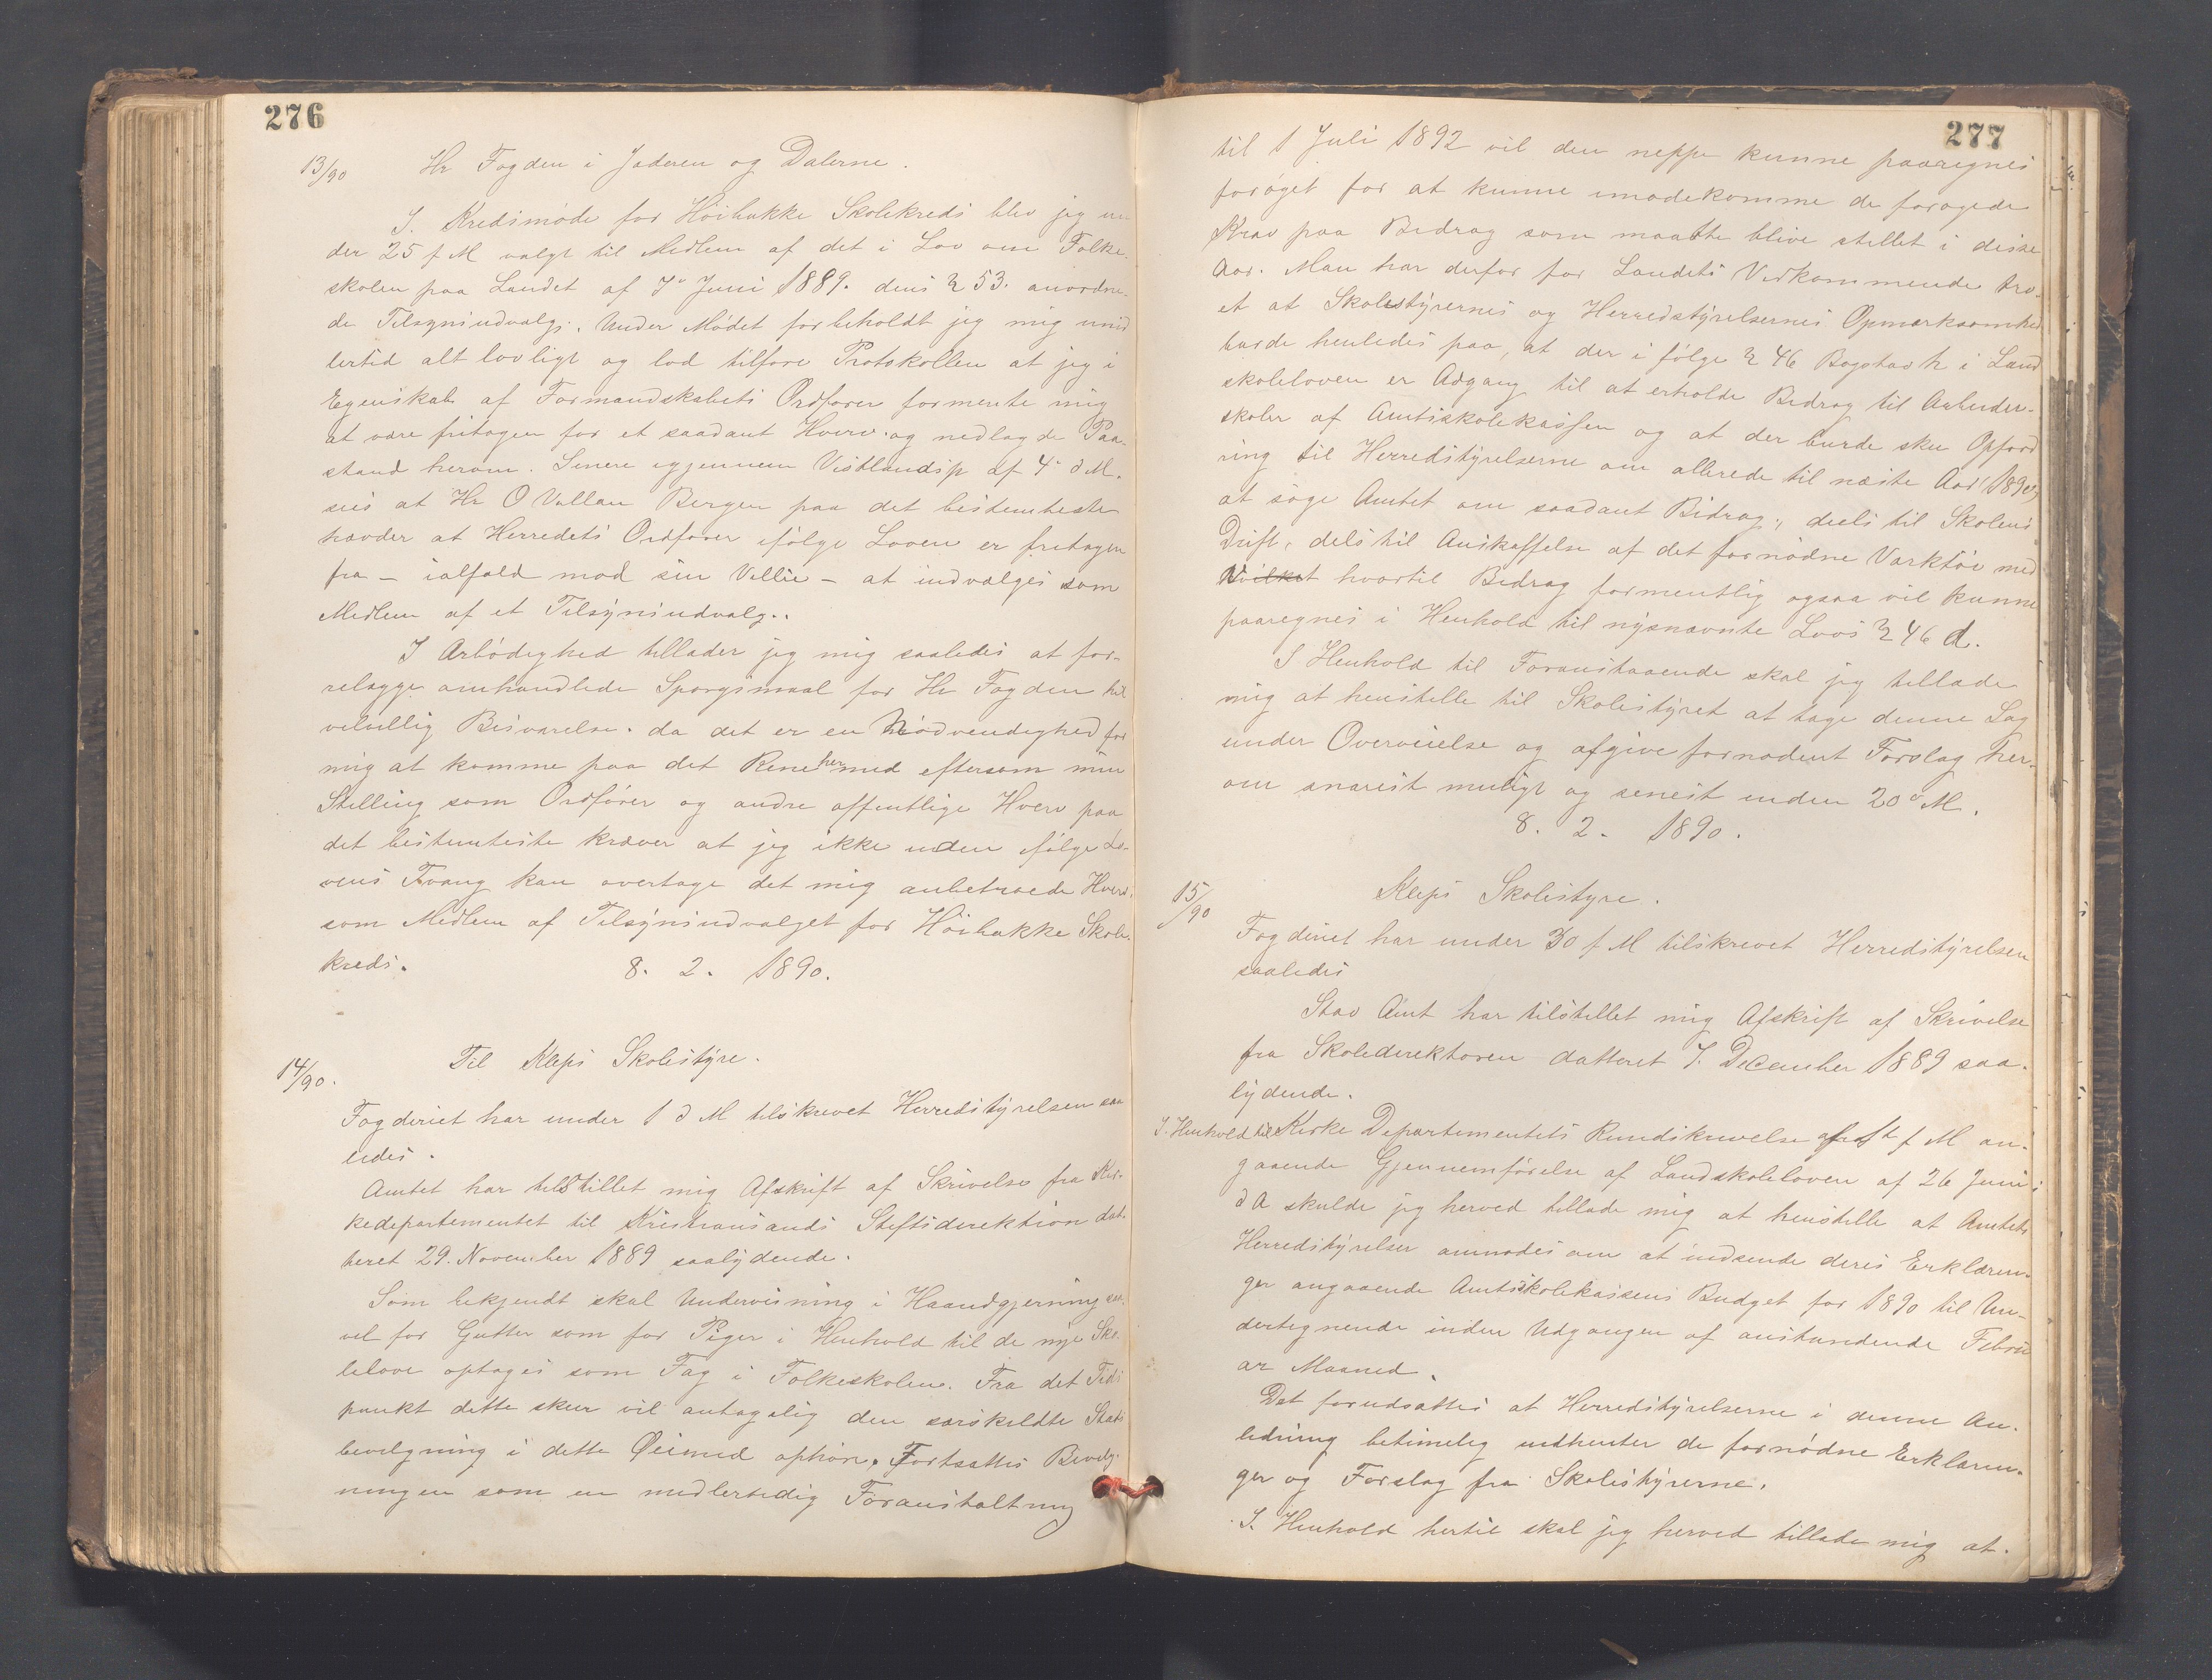 276
13/90 Hr Fogden i Jæderen og Dalerne.
I. Kredsmøde for Höibakke Skolekreds blev jeg un
der 25 f M valgt til Medlem af det i Lov om Folke
skolen paa Landet af Juni 1889. dens § 53. anordne-
de Tilsynsudvalg. Under Mødet forbeholdt jeg mig imid
lertid alt lovligt og lod tilføre Protokollen at jeg i
Egenskab af Formandskabets Ordfører formente mig
at være fritagen for et saadant Hverv og nedlagde Paa-
stand herom. Senere igjennem Vestlandsp af 4 d M.
sees at Hr O Vollan Bergen paa det bestemteste
hævder at Herredets Ordfører ifølge Loven er fritagen
fra – ialfald mod sin Villie – at indvælges som
Medlem af et Tilsynsudvalg..
I Ærbødighed tillader jeg mig saaledes at fore-
relægge omhandlede Spørgsmaal for Hr Fogden til
velvillig Besvarelse. da det er en Nødvendighed for
mig at komme paa det Rene hermed eftersom min
Stilling som Ordfører og andre offentlige Hverv paa
det bestemteste kræver at jeg ikke uden ifølge Lo-
vens Tvang kan overtage det mig anbetroede Hverv.
som Medlem af Tilsynsudvalget for Höibakke Skole-
kreds. 8. 2. 1890.
14/90. Til Kleps Skolestyre.
Fogderiet har under 1 d M tilskrevet Herredstyrelsen saa
ledes.
Amtet har tilstillet mig Afskrift af Skrivelse fra Kir-
kedepartementet til Kristiansands Stiftsdirektion dat-
teret 29. November 1889 saalydende.
Som bekjendt skal Undervisning i Haandgjerning saa-
vel for Gutter som for Piger i Henhold til de nye Sko-
lelove optages som Fag i Folkeskolen. Fra det Tids
punkt dette skeer vil antagelig den særskildte Stats
bevilgning i dette Øiemed ophøre. Fortsættes Bevilg-
ningen som en midlertidig Foranstaltning
277
til 1 Juli 1892 vil den neppe kunne paaregnes
forøget for at kunne imødekomme de forøgede
Krav paa Bidrag som maatte blive stillet i disse
Aar. Man har derfor for Landets Vedkommende tro-
et at Skolestyrernes og Herredstyrelsernes Opmærksomhed
burde henledes paa, at der i følge § 46 Bogstav h i Land
skoleloven er Adgang til at erholde Bidrag til Arbeider-
skoler af Amtsskolekassen og at der burde skee Opford
ring til Herredstyrelserne om allerede til næste Aar (1890)
at søge Amtet om saadant Bidrag, deels til Skolens
Drift, dels til Anskaffelse af det fornødne Værktøi med
hvilket hvortil Bidrag formentlig ogsaa vil kunne
paaregnes i Henhold til nysnævnte Lovs § 46 d.
I Henhold til Foranstaaende skal jeg tillade
mig at henstille til Skolestyret at tage denne Sag
under Overveielse og afgive fornødent Forslag her-
om snarest muligt og senest inden 20 d M.
8. 2. 1890.
15/90 Kleps Skolestyre.
Fogderiet har under 30 f M tilskrevet Herredstyrelsen
saaledes
Stav Amt har tilstillet mig Afskrift af Skrivelse
fra Skoledirektøren datteret 7. December 1889 saa-
lydende.
I. Henhold til Kirke Departementets Rundskrivelse af f M an-
gaaende Gjennemførelse af Landskoleloven af 26 Juni
d A skulde jeg herved tillade mig at henstille at Amtets
Herredstyrelser anmodes om at indsende deres Erklærin-
ger angaaende Amtsskolekassens Budget for 1890 til Un-
dertegnende inden Udgangen af anstundende Febru
ar Maaned.
Det forudsættes at Herredstyrelserne i denne An-
ledning betimelig indhenter de fornødne Erklærin-
ger og Forslag fra Skolestyrerne.
I. Henhold hertil skal jeg herved tillade mig at.